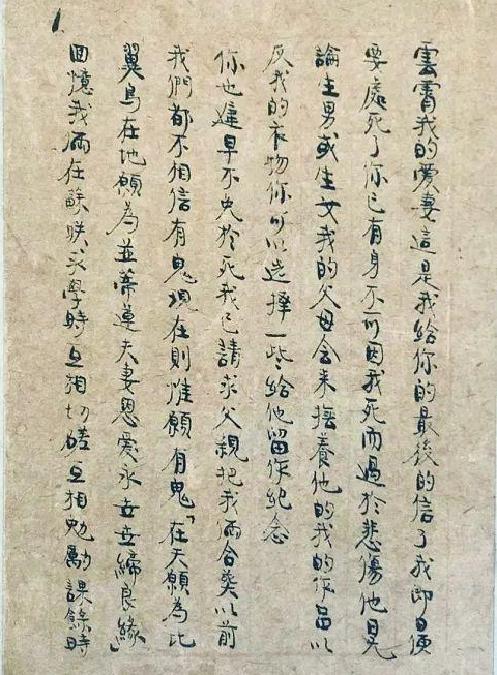 1
雲霄我的愛妻這是我給你的最後的信了我即日便
要處死了你已有身不可因我死而過於悲傷他日无
論生男或生女我的父母会来撫養他的我的作品以
及我的衣物你可以选擇一些給他留作紀念
你也遲早不免於死我已請求父親把我倆合葬以前
我們都不相信有鬼現在則惟願有鬼「在天願為比
翼鳥在地願為並蒂蓮夫妻恩愛永世世締良緣」
回憶我倆在蘇联求學時互相切磋互相勉勵課餘時